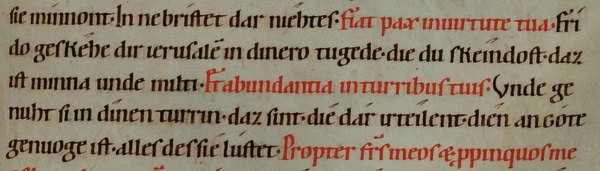 sie minnont. In nebristet dar niehtes. Fiat pax in uirtute tua. Fri
do geskehe dir ierusalē in dinero tugede. die du skeindost. daz
ist minna unde milti. Et abundantia in turribus tuis. Vnde ge
nuht si in dinen turrin. daz sint. die dar irteilent. dien an gote
genuoge ist. alles des sie lustet. Propter frs meos & ppinquos me